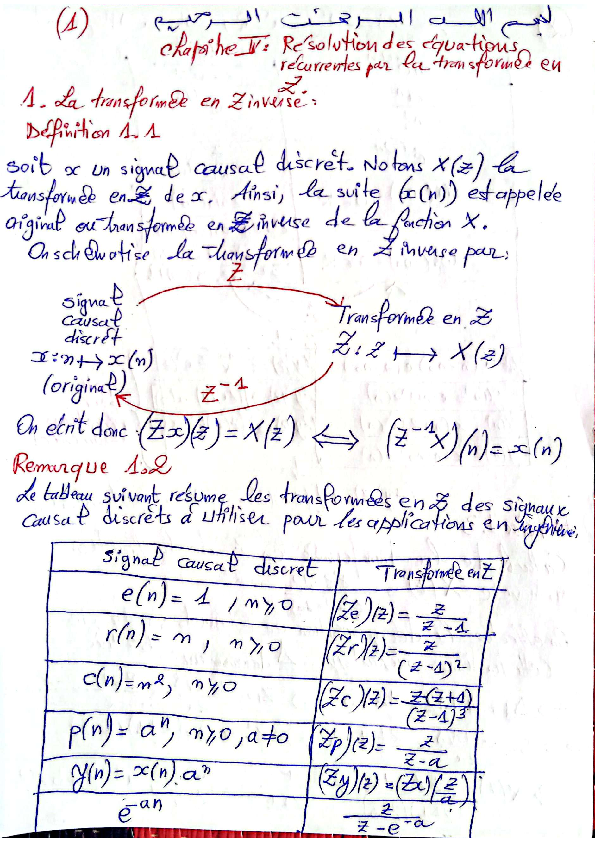 (1) بسم الله الرحمن الرحيم
Chapitre IV: Résolution des équations
récurrentes par la transformée en
Z.
1. La transformée en Z inverse:
Définition 1.1
soit x un signal causal discrét. Notons X(z) la
transformée en Z de x. Ainsi, la suite (x(n)) est appelée
original ou transformée en Z inverse de la fonction X.
On schématise la transformée en Z inverse par:
Z
signal
causal
discrét
x: n ↦ x(n)
(original)
Transformée en Z
Z: z ↦ X(z)
Z⁻¹
On écrit donc (Zx)(z) = X(z) ⟺ (Z⁻¹X)(n) = x(n)
Remarque 1.2
Le tableau suivant résume les transformées en Z des signaux
causal discréts à utiliser pour les applications en ingénierie.
Signal causal discret | Transformée en Z
e(n) = 1, n⩾0 | (Ze)(z) = z/(z-1)
r(n) = n, n⩾0 | (Zr)(z) = z/(z-1)²
c(n) = n², n⩾0 | (Zc)(z) = z(z+1)/(z-1)³
p(n) = aⁿ, n⩾0, a≠0 | (Zp)(z) = z/(z-a)
y(n) = x(n).aⁿ | (Zy)(z) = (Zx)(z/a)
e⁻ᵃⁿ | z/(z-e⁻ᵃ)